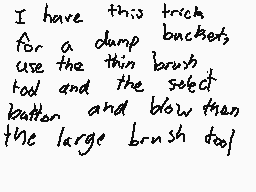 I have this trick
for a dump buckets,
use the thin brush
tool and the select
button and blow then
the large brush tool